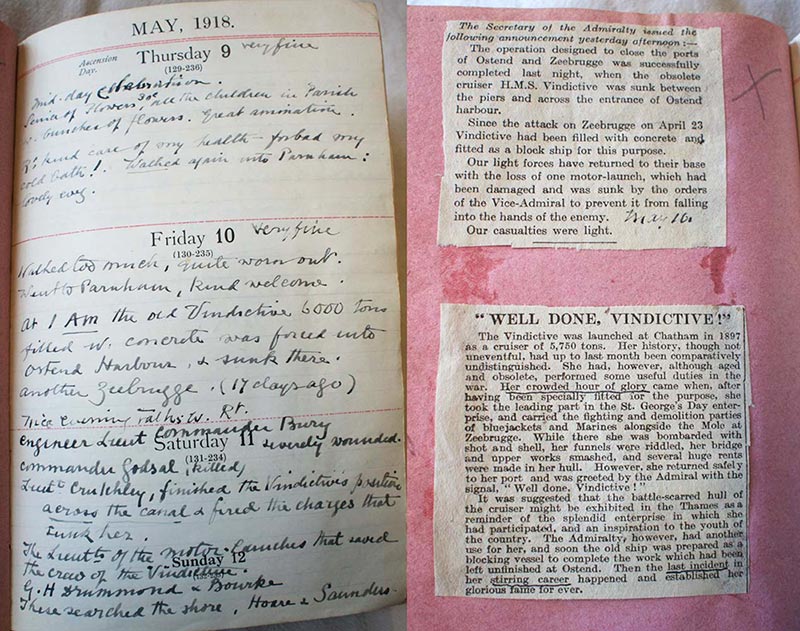 MAY, 1918.
Ascension Day.
Thursday 9 very fine
(129-236)
Mid-day Celebration.
of Flowers 300 all the children in Parish
w. bunches of flowers. Great animation.
kind care of my health - forbad my
cold bath! Walked again into Parnham:
lovely eveg.
Friday 10 very fine
(130-235)
Walked too much, quite worn out.
Went to Parnham, kind welcome.
At 1 AM the old Vindictive 6000 tons
filled w. concrete was forced into
Ostend Harbour, & sunk there.
another Zeebrugge. (17 days ago)
Nice evening talks w. Rt.
Engineer Lieut Commander Bury
Saturday 11 severely wounded.
(131-234)
Commander Godsal, (killed)
Lieut. Crutchley, finished the Vindictives position
across the canal & fired the charges that
sunk her.
The Lieuts of the motor-launches that saved
Sunday 12
the crew of the Vindictive.
G.H Drummond & Bourke
These searched the shore, Hoare & Saunders.
The Secretary of the Admiralty issued the
following announcement yesterday afternoon :—
The operation designed to close the ports
of Ostend and Zeebrugge was successfully
completed last night, when the obsolete
cruiser H.M.S. Vindictive was sunk between
the piers and across the entrance of Ostend
harbour.
Since the attack on Zeebrugge on April 23
Vindictive had been filled with concrete and
fitted as a block ship for this purpose.
Our light forces have returned to their base
with the loss of one motor-launch, which had
been damaged and was sunk by the orders
of the Vice-Admiral to prevent it from falling
into the hands of the enemy. May 10.
Our casualties were light.
"WELL DONE, VINDICTIVE!"
The Vindictive was launched at Chatham in 1897
as a cruiser of 5,750 tons. Her history, though not
uneventful, had up to last month been comparatively
undistinguished. She had, however, although aged
and obsolete, performed some useful duties in the
war. Her crowded hour of glory came when, after
having been specially fitted for the purpose, she
took the leading part in the St. George's Day enter-
prise, and carried the fighting and demolition parties
of bluejackets and Marines alongside the Mole at
Zeebrugge. While there she was bombarded with
shot and shell, her funnels were riddled, her bridge
and upper works smashed, and several huge rents
were made in her hull. However, she returned safely
to her port and was greeted by the Admiral with the
signal, "Well done, Vindictive!"
It was suggested that the battle-scarred hull of
the cruiser might be exhibited in the Thames as a
reminder of the splendid enterprise in which she
had participated, and an inspiration to the youth of
the country. The Admiralty, however, had another
use for her, and soon the old ship was prepared as a
blocking vessel to complete the work which had been
left unfinished at Ostend. Then the last incident in
her stirring career happened and established her
glorious fame for ever.